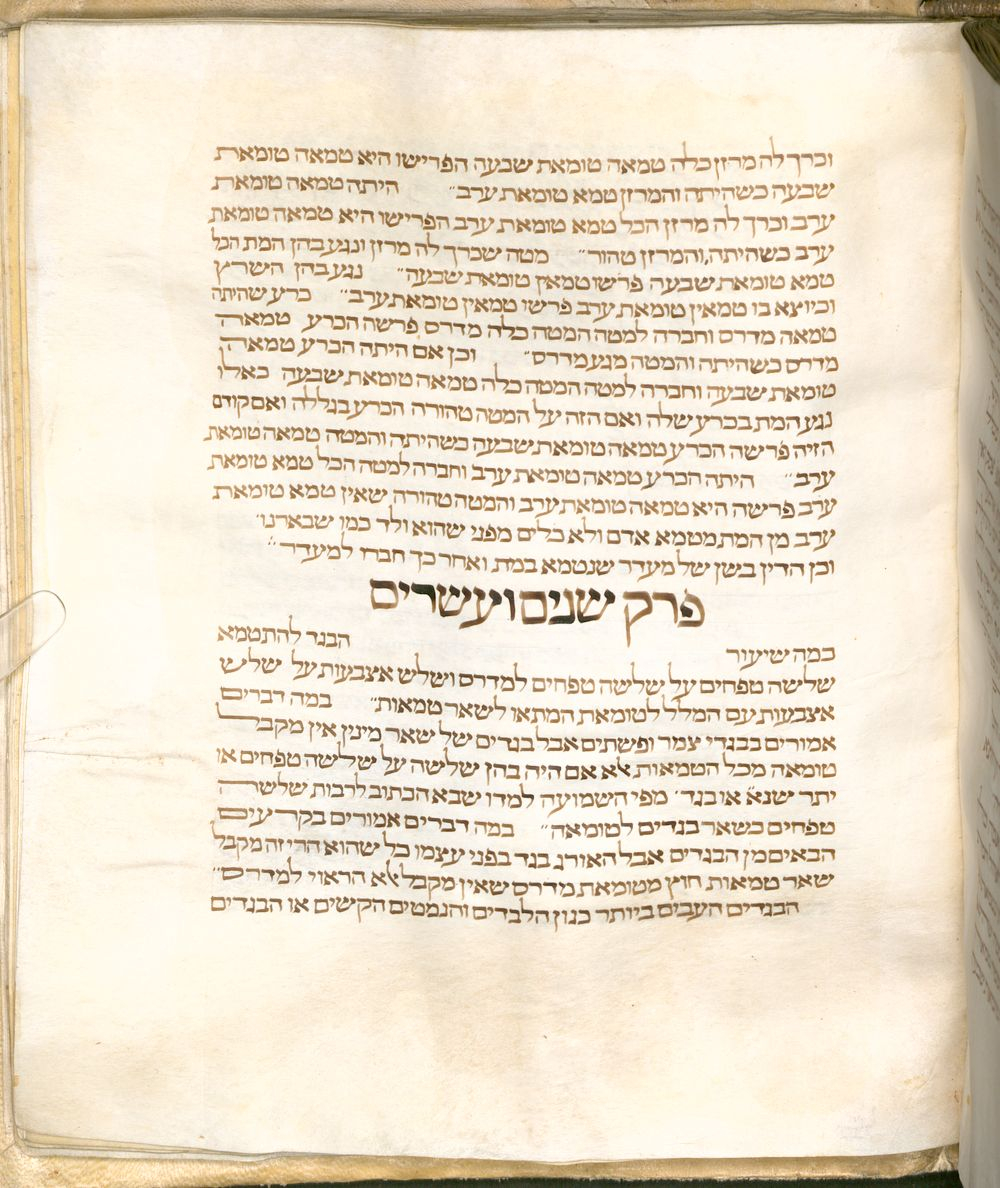 וכרך לה מרזן כלה טמאה טומאת שבעה הפרישו היא טמאה טומאת
שבעה כשהיתה והמרזן טמא טומאת ערב״ היתה טמאה טומאת
ערב וכרך לה מרזן הכל טמא טומאת ערב הפרישו היא טמאה טומאת
ערב כשהיתה, והמרזן טהור״ מטה שכרך לה מרזן ונגע בהן המת הכל
טמא טומאת שבעה פרשו טמאין טומאת שבעה״ נגע בהן השרץ
וכיוצא בו טמאין טומאת ערב פרשו טמאין טומאת ערב״ כרע שהיתה
טמאה מדרס וחברה למטה המטה כלה מדרס פרשה הכרע טמאה
מדרס כשהיתה והמטה מגע מדרס״ וכן אם היתה הכרע טמאה
טומאת שבעה וחברה למטה המטה כלה טמאה טומאת שבעה כאלו
נגע המת בכרע שלה ואם הזה על המטה טהורה הכרע בגללה ואם קודם
הזיה פרשה הכרע טמאה טומאת שבעה כשהיתה והמטה טמאה טומאת
ערב״ היתה הכרע טמאה טומאת ערב וחברה למטה הכל טמא טומאת
ערב פרשה היא טמאה טומאת ערב והמטה טהורה שאין טמא טומאת
ערב מן המת מטמא אדם ולא כלים מפני שהוא ולד כמו שבארנו׳
וכן הדין בשן של מעדר שנטמא במת ואחר כך חברו למעדר״
פרק שנים ועשרים
כמה שיעור הבגד להתטמא
שלישה טפחים על שלישה טפחים למדרס ושלש אצבעות על שלש
אצבעות עם המלל לטומאת המת או לשאר טמאות״ במה דברים
אמורים בבגדי צמר ופשתים אבל בגדים של שאר מינין אין מקבל
טומאה מכל הטמאות אלא אם היה בהן שלישה על שלישה טפחים או
יתר שנא׳ או בגד׳ מפי השמועה למדו שבא הכתוב לרבות שלשה
טפחים בשאר בגדים לטומאה״ במה דברים אמורים בקרעים
הבאים מן הבגדים אבל האורג בגד בפני עצמו כל שהוא הרי זה מקבל
שאר טמאות חוץ מטומאת מדרס שאין מקבל אלא הראוי למדרס״
הבגדים העבים ביותר כגון הלבדים והנמטים הקשים או הבגדים